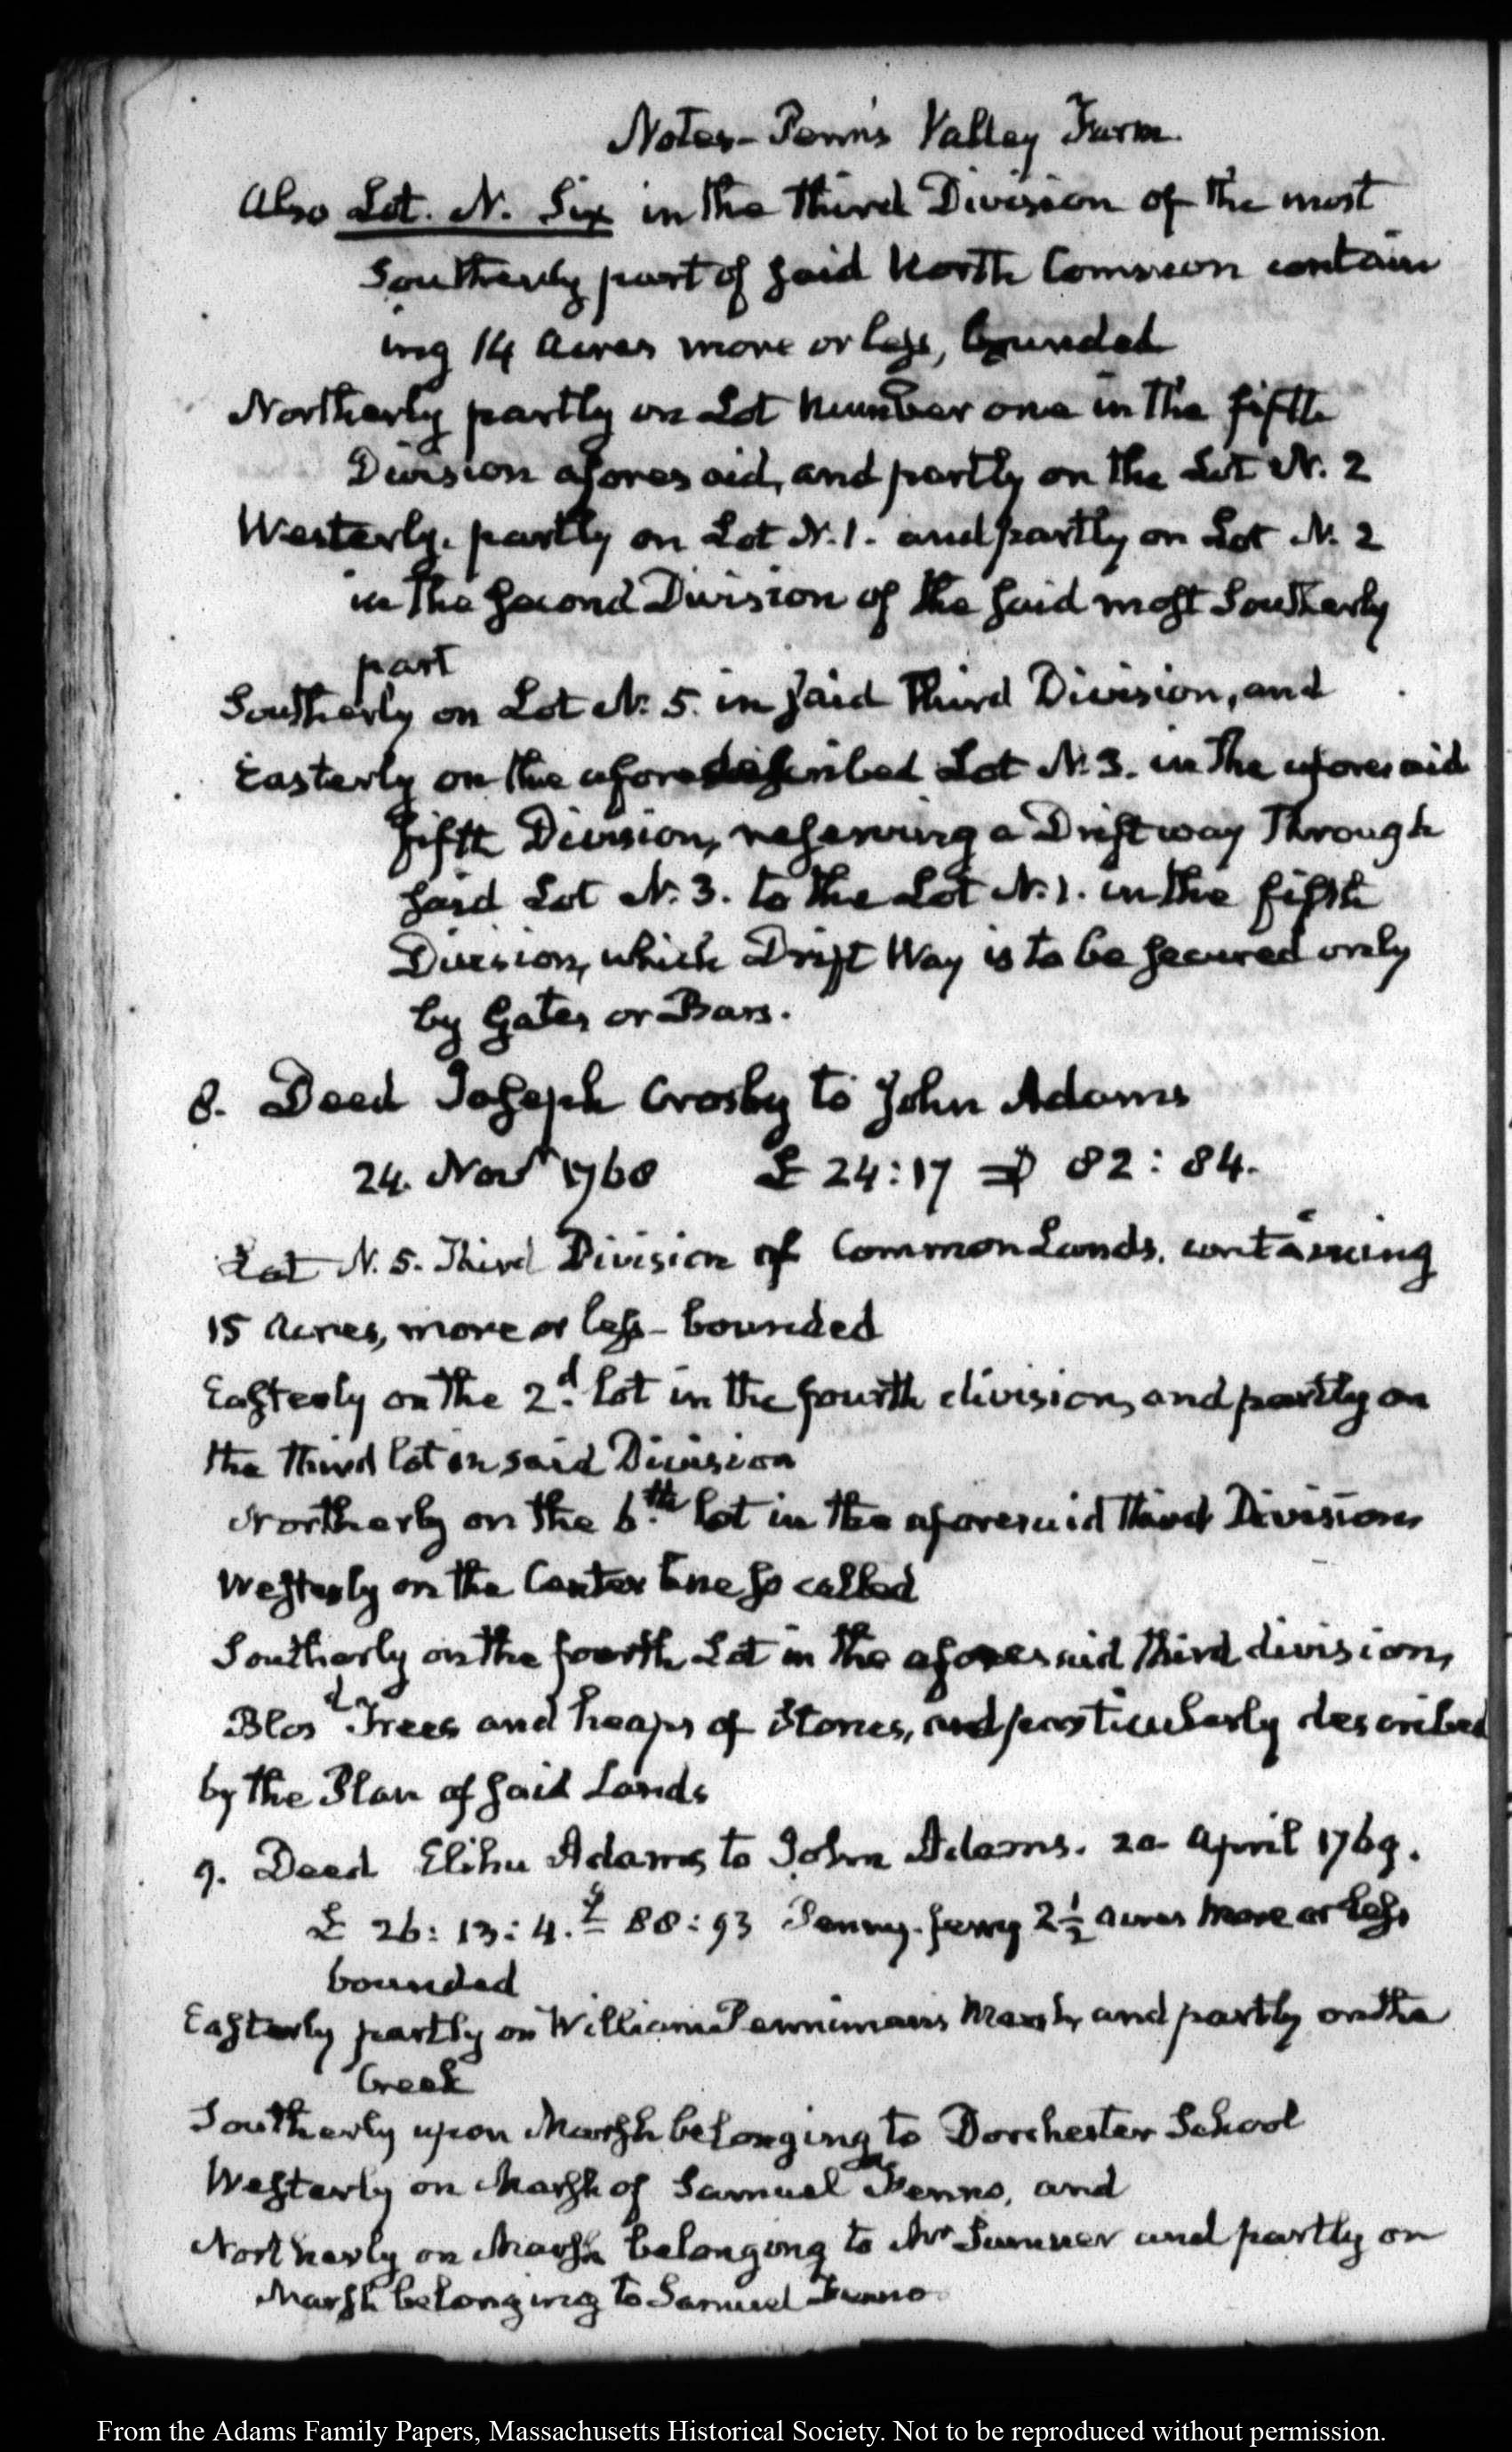 Notes - Penn's Valley Farm.
Also Lot. N. Six in the third Division of the most
Southerly part of said North Common contain
ing 14 Acres more or less, bounded
Northerly partly on Lot Number one in the fifth
Division aforesaid, and partly on the Lot N. 2
Westerly. partly on Lot N. 1. and partly on Lot N. 2
in the second Division of the said most Southerly
part
Southerly on Lot N. 5. in said third Division, and
Easterly on the aforedescribed Lot N. 3. in the aforesaid
fifth Division, reserving a Driftway through
said Lot N. 3. to the Lot N. 1. in the fifth
Division, which Drift Way is to be secured only
by Gates or Bars.
8. Deed Joseph Crosby to John Adams
24. Novr 1768 £ 24:17 82:84.
Lot N. 5. Third Division of Common Lands. containing
15 Acres, more or less - bounded
Easterly on the 2.d lot in the fourth division, and partly on
the third lot in said Division
Northerly on the 6.th lot in the aforesaid third Division
Westerly on the Center line so called
Southerly on the fourth Lot in the aforesaid third division,
Blosd Trees and heaps of Stones, and particularly described
by the Plan of said Lands
9. Deed Elihu Adams to John Adams. 20 April 1769.
£ 26:13:4. 88:93 Penny-ferry 2 1/2 acres more or less
bounded
Easterly partly on William Penniman's Marsh, and partly on the
Creek
Southerly upon Marsh belonging to Dorchester School
Westerly on Marsh of Samuel Fenno, and
Northerly on Marsh belonging to Mr Sumner and partly on
Marsh belonging to Samuel Fenno
From the Adams Family Papers, Massachusetts Historical Society. Not to be reproduced without permission.